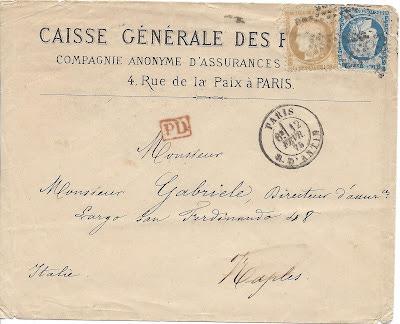 CAISSE GÉNÉRALE DES F
COMPAGNIE ANONYME D'ASSURANCES
4. Rue de la Paix à PARIS.
PD
PARIS
12
FEVR
75
R. D'ANTIN
Monsieur
Monsieur Gabriele, Directeur d'assur<sup>ce</sup>
Largo San Ferdinando 48
Italie. Naples